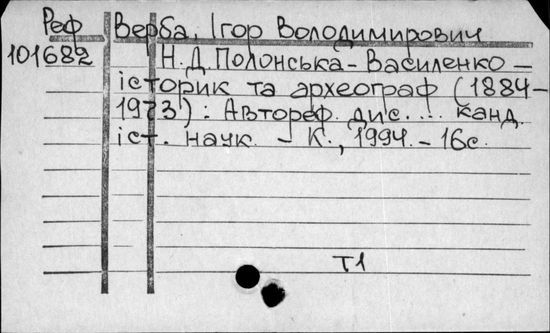 Реф Верба, Ігор Володимирович
101682 Н.Д. Полонська-Василенко –
історик та археограф (1884–
1973): Автореф. дис.... канд.
іст. наук. – К., 1994. – 16с.
Т1